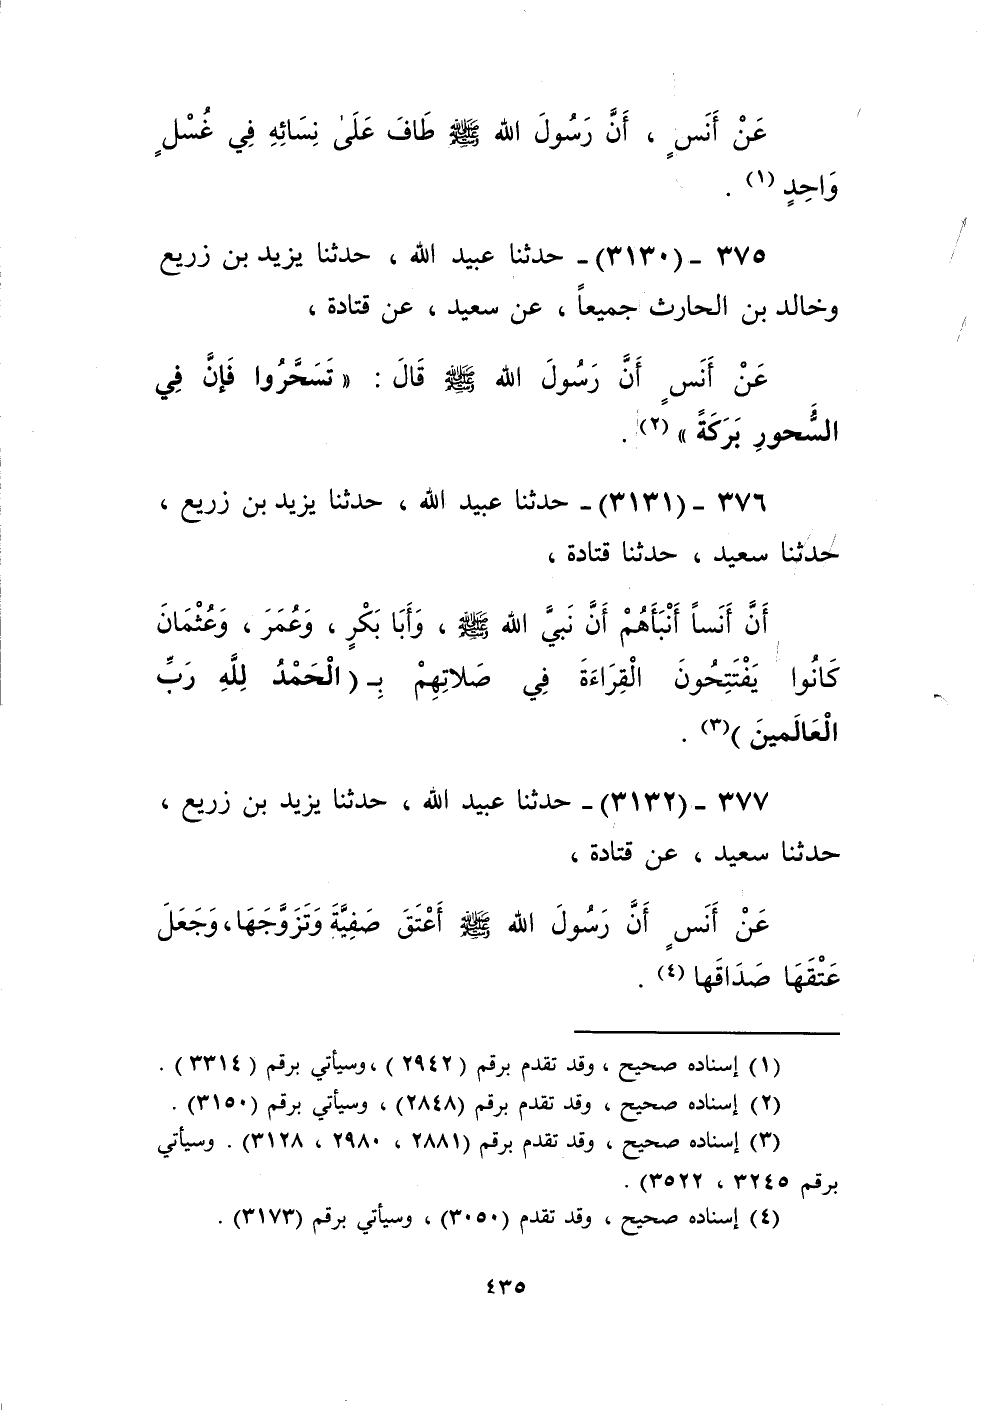 عَنْ أَنَسٍ ، أَنَّ رَسُولَ الله ﷺ طَافَ عَلَىٰ نِسَائِهِ فِي غُسْلٍ
وَاحِدٍ (١) .
٣٧٥ ـ (٣١٣٠) ـ حدثنا عبيد الله ، حدثنا يزيد بن زريع
وخالد بن الحارث جميعاً ، عن سعيد ، عن قتادة ،
عَنْ أَنَسٍ أَنَّ رَسُولَ الله ﷺ قَالَ : « تَسَحَّرُوا فَإِنَّ فِي
السُّحُورِ بَرَكَةً » (٢) .
٣٧٦ ـ (٣١٣١) ـ حدثنا عبيد الله ، حدثنا يزيد بن زريع ،
حدثنا سعيد ، حدثنا قتادة ،
أَنَّ أَنَساً أَنْبَأَهُمْ أَنَّ نَبِيَّ الله ﷺ ، وَأَبَا بَكْرٍ ، وَعُمَرَ ، وَعُثْمَانَ
كَانُوا يَفْتَتِحُونَ الْقِرَاءَةَ فِي صَلاتِهِمْ بِـ ( الْحَمْدُ لِلَّهِ رَبِّ
الْعَالَمينَ )(٣) .
٣٧٧ ـ (٣١٣٢) ـ حدثنا عبيد الله ، حدثنا يزيد بن زريع ،
حدثنا سعيد ، عن قتادة ،
عَنْ أَنَسٍ أَنَّ رَسُولَ الله ﷺ أَعْتَقَ صَفِيَّةَ وَتَزَوَّجَهَا، وَجَعَلَ
عَتْقَهَا صَدَاقَها (٤) .
(١) إسناده صحيح ، وقد تقدم برقم ( ٢٩٤٢ ) ، وسيأتي برقم ( ٣٣١٤ ) .
(٢) إسناده صحيح ، وقد تقدم برقم (٢٨٤٨) ، وسيأتي برقم (٣١٥٠) .
(٣) إسناده صحيح ، وقد تقدم برقم (٢٨٨١ ، ٢٩٨٠ ، ٣١٢٨) . وسيأتي
برقم ٣٢٤٥ ، ٣٥٢٢) .
(٤) إسناده صحيح ، وقد تقدم (٣٠٥٠) ، وسيأتي برقم (٣١٧٣) .
٤٣٥